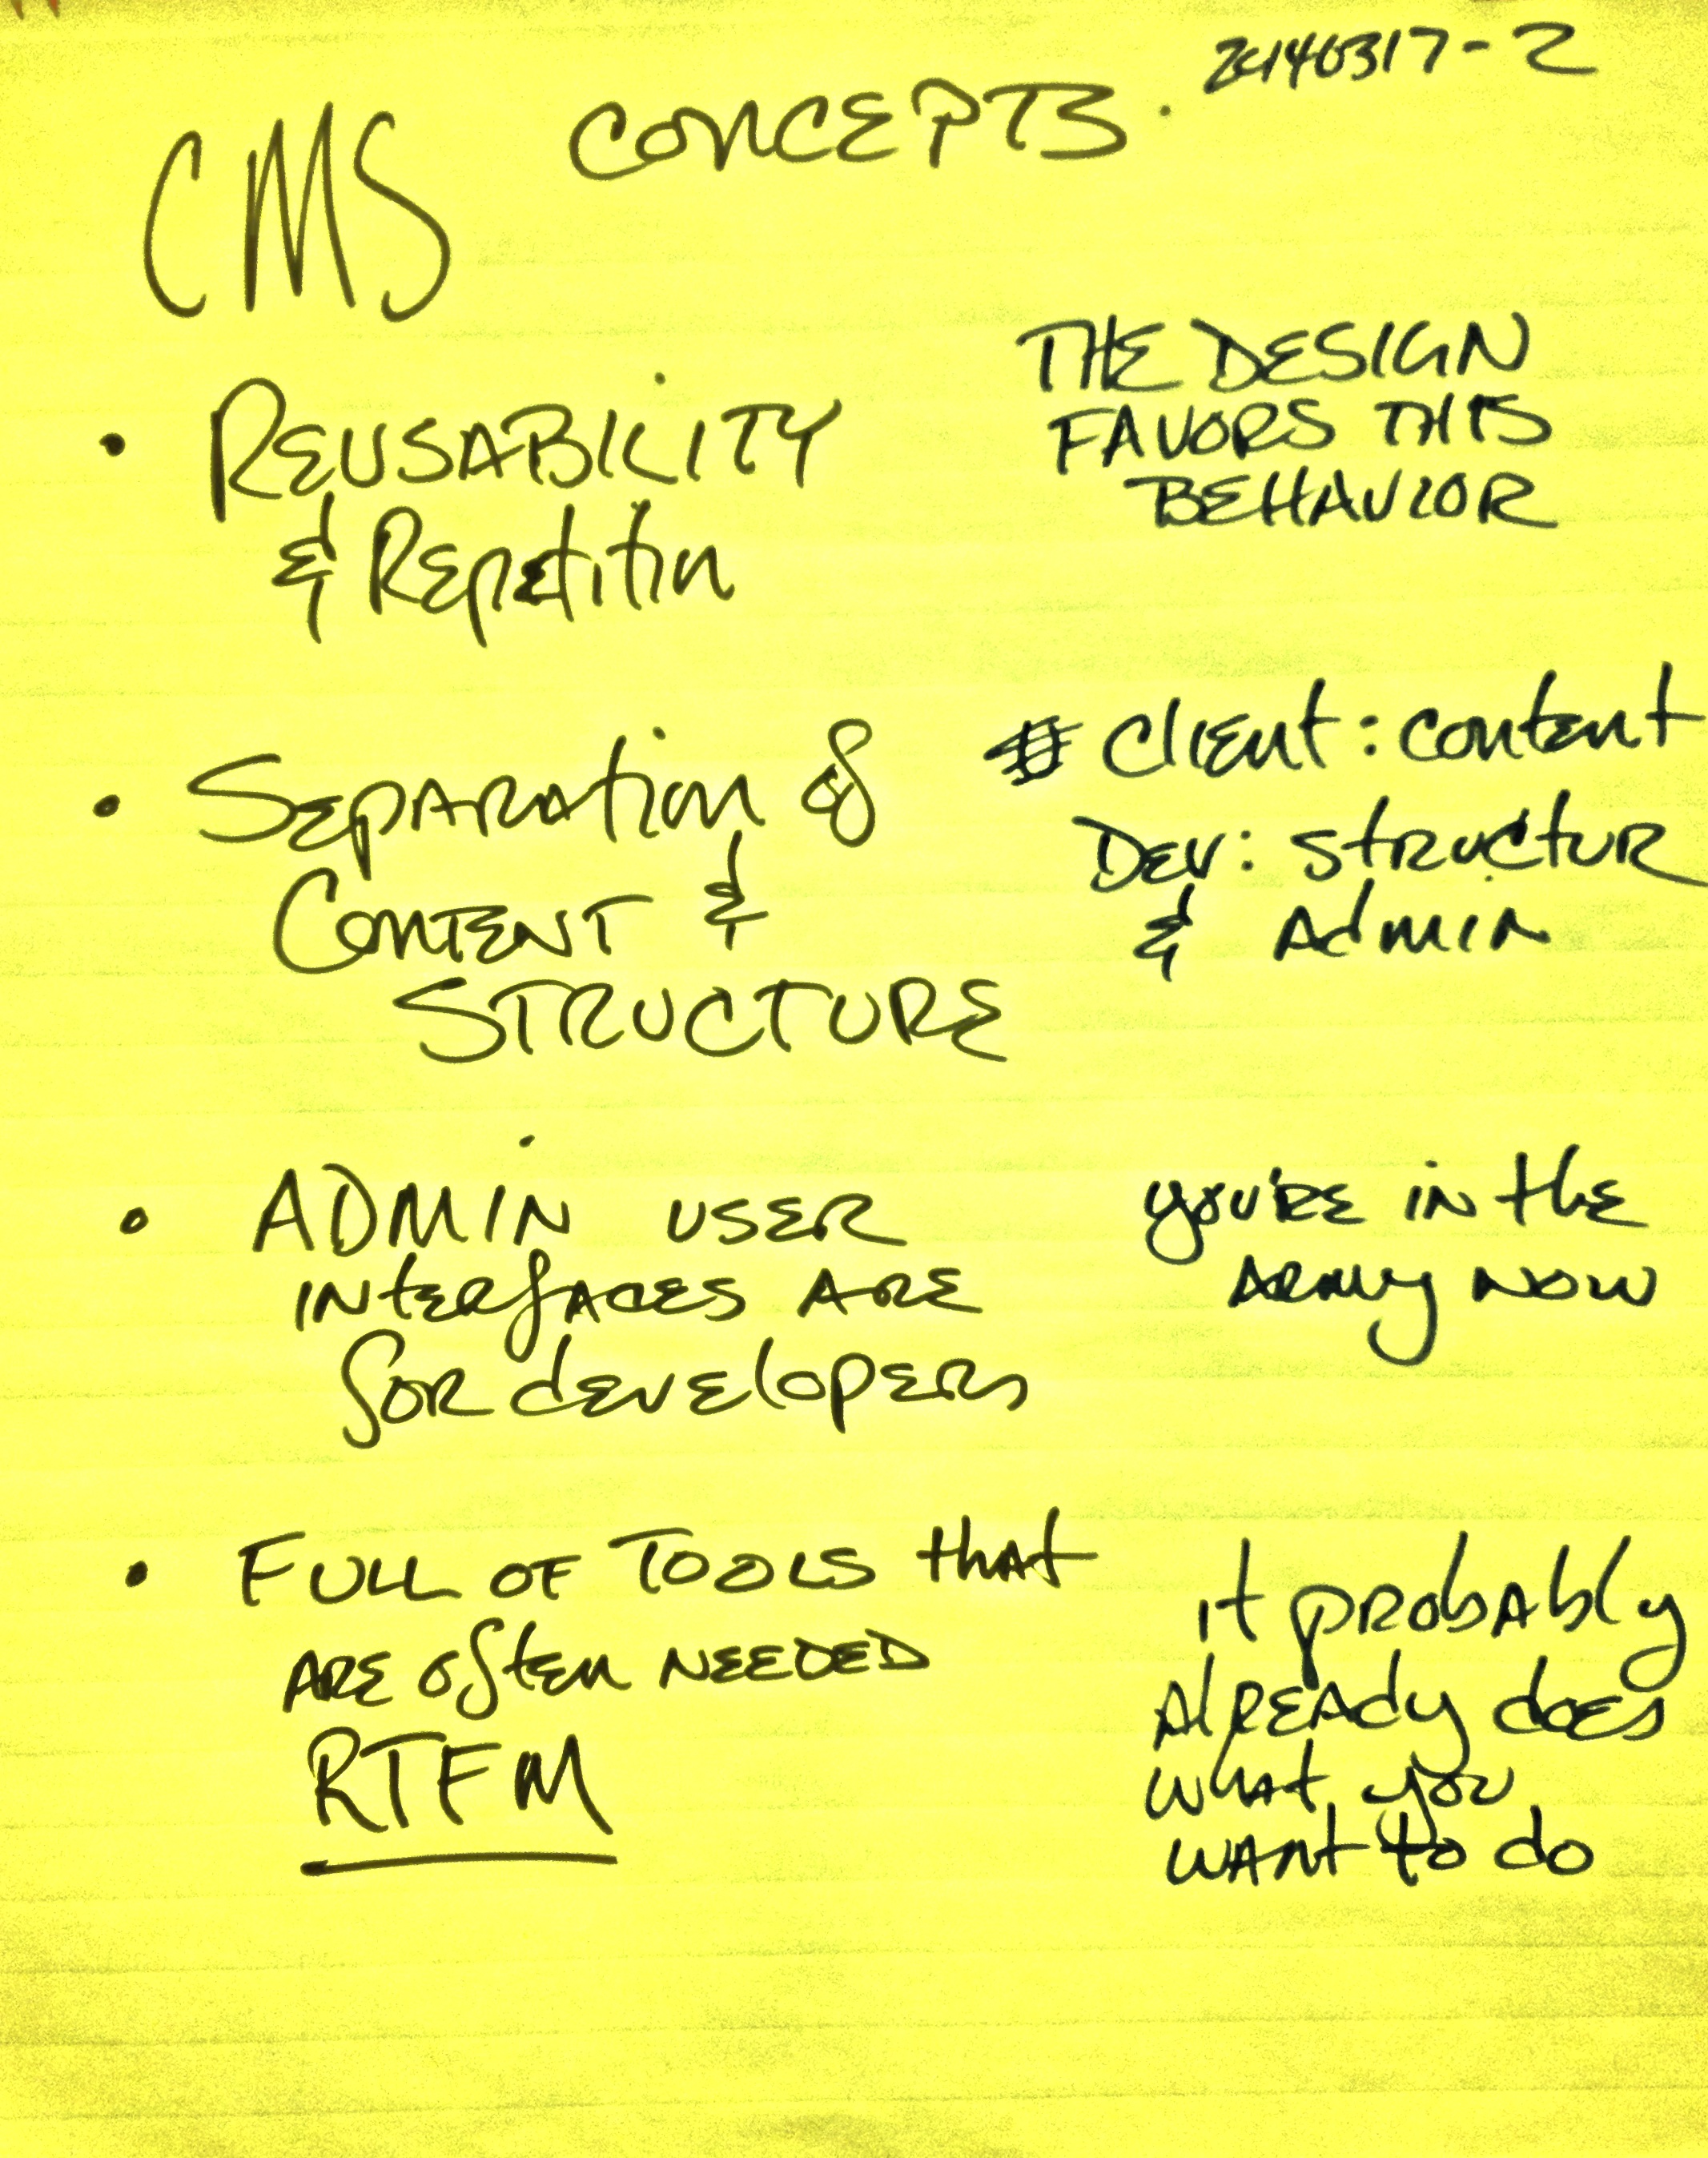 20140317-2
CMS CONCEPTS.
• REUSABILITY
& Repetition
THE DESIGN
FAVORS THIS
BEHAVIOR
• Separation of
CONTENT &
STRUCTURE
# Client: content
Dev: structur
& Admin
• ADMIN USER
INterfACES ARE
for developers
you're in the
ARMy NOW
• FULL OF TOOLS that
ARE often NEEDED
RTFM
it probably
AlREAdy does
what you
wANt to do